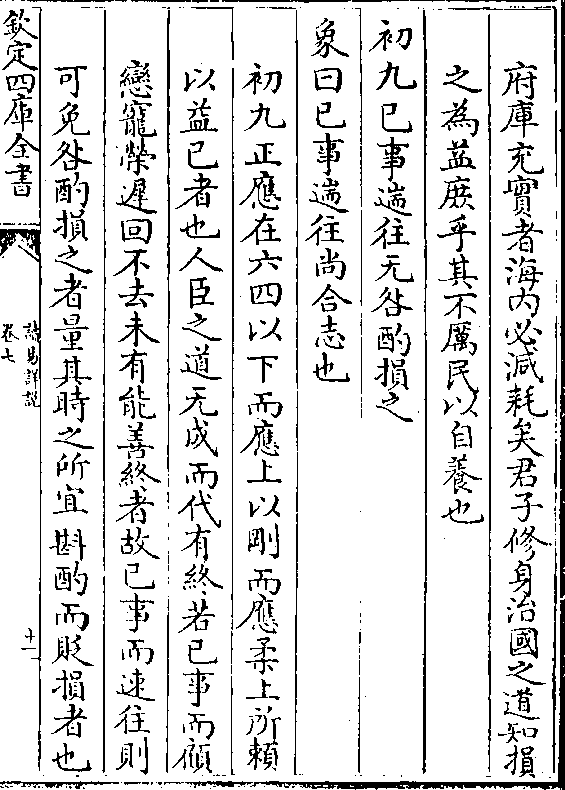 府庫充實者海内必減耗矣君子修身治國之道知損
之為益庶乎其不厲民以自養也
初九已事遄往无咎酌損之
象曰已事遄往尚合志也
初九正應在六四以下而應上以剛而應柔上所賴
以益已者也人臣之道无成而代有終若已事而顧
戀寵榮遲回不去未有能善終者故已事而速往則
可免咎酌損之者量其時之所宜斟酌而貶損者也
欽定四庫全書
讀易詳說
卷七
十一